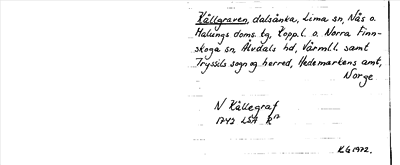 Källgraven, dalsänka, Lima sn, Nås o.
Malungs doms. tg, Kopp. l. o. Norra Finn-
skoga sn Älvdals hd, Värml. l. samt
Tryssils sogn og herred, Hedemarkens amt,
Norge
N Källegraf
1742 LSA R12
K.G 1972.